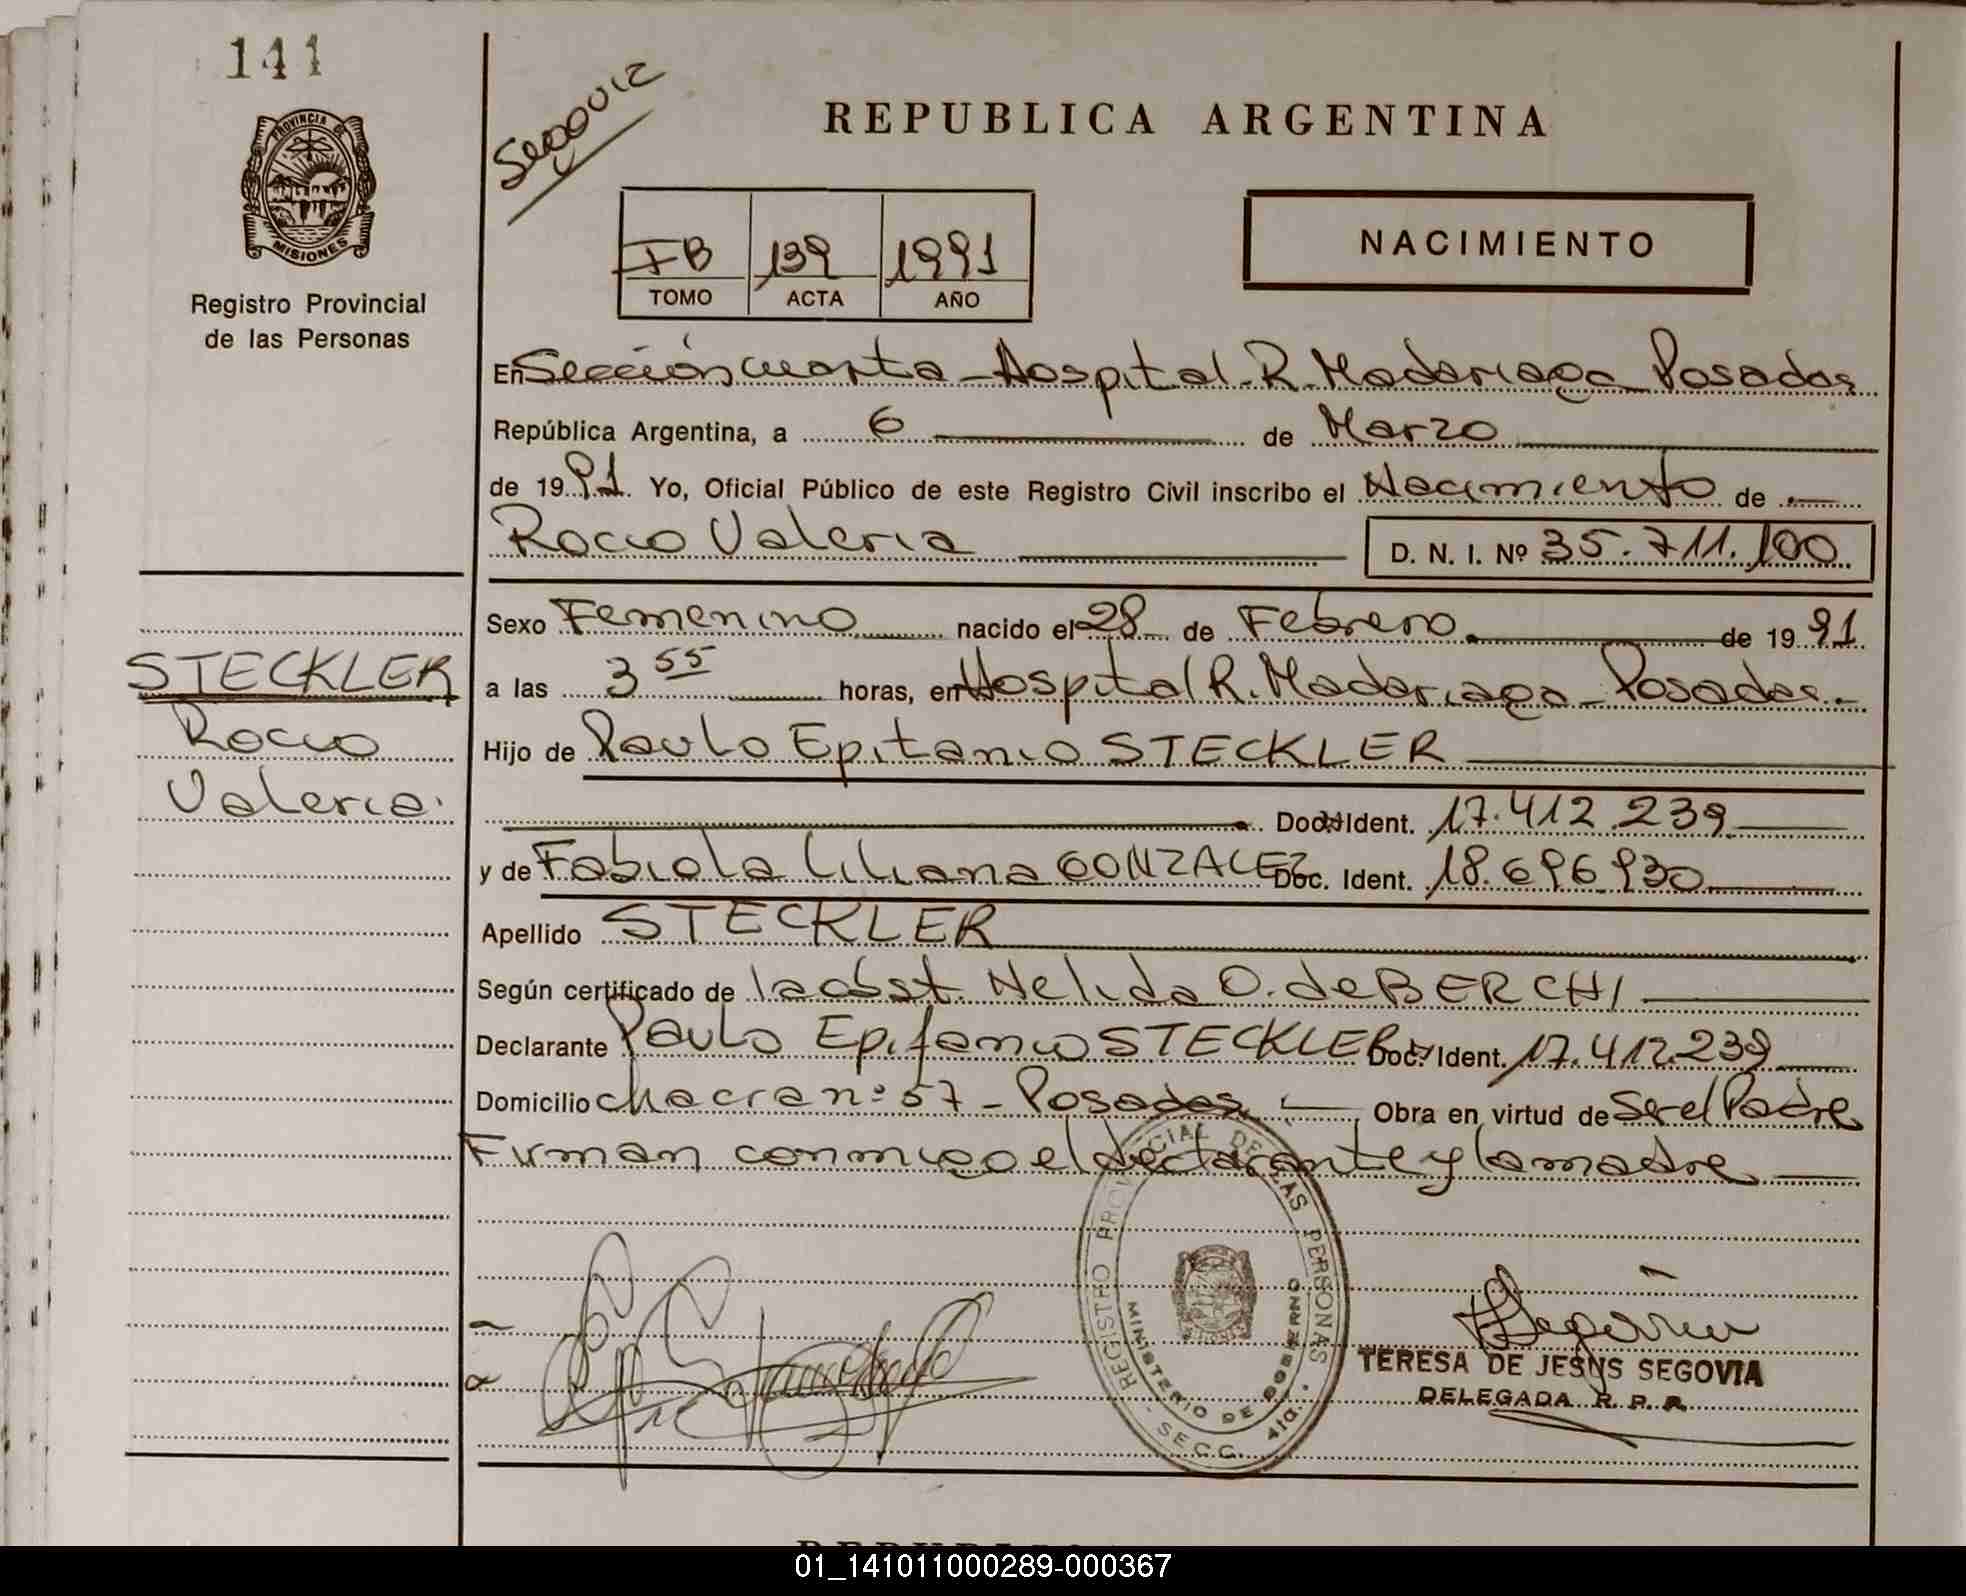 141
PROVINCIA DE
MISIONES
Registro Provincial
de las Personas
REPUBLICA ARGENTINA
NACIMIENTO
IB 139 1991
TOMO ACTA AÑO
En Sección cuarta - Hospital R. Madariaga Posadas
República Argentina, a 6 de Marzo
de 1991. Yo, Oficial Público de este Registro Civil inscribo el Nacimiento de
Rocio Valeria D. N. I. Nº 35.711.100
Sexo Femenino nacido el 28 de Febrero de 1991
a las 3 55 horas, en Hospital R. Madariaga - Posadas.-
Hijo de Paulo Epitanio STECKLER
Doc. Ident. 17.412.239
y de Fabiola Liliana GONZALEZ Doc. Ident. 18.696.930
Apellido STECKLER
Según certificado de la obst. Nelida O. de BERCHI
Declarante Paulo Epifanio STECKLER Doc. Ident. 17.412.239
Domicilio chacra nº 57 - Posadas. Obra en virtud de Ser el Padre
Firman conmigo el declarante y la madre
STECKLER
Rocio
Valeria.
REGISTRO PROVINCIAL DE LAS PERSONAS
MINISTERIO DE GOBIERNO
SECC. 4ta.
TERESA DE JESUS SEGOVIA
DELEGADA R. P. P.
01_141011000289-000367